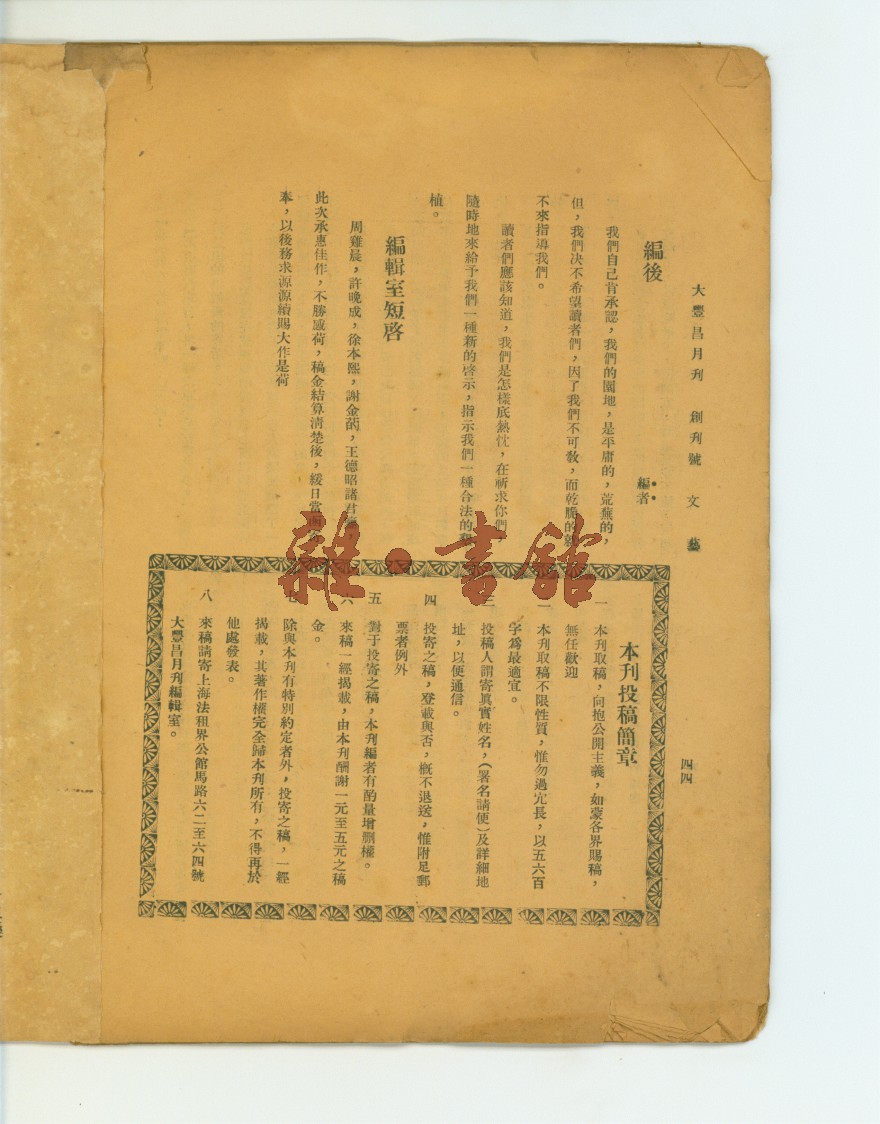 大豐昌月刊　創刊號　文　藝
四四
編後
編者
我們自己肯承認，我們的園地，是平庸的，荒蕪的，
但，我們決不希望讀者們，因了我們不可敎，而乾脆的
不來指導我們。
讀者們應該知道，我們是怎樣底熱忱，在祈求你們
隨時地來給予我們一種新的啓示，指示我們一種合法的
植。
編輯室短啓
周雞晨，許晚成，徐本熙，謝金，王德昭諸君
此次承惠佳作，不勝感荷，稿金結算清楚後，緩日當
奉，以後務求源源續賜大作是荷
雜·書館
本刊投稿簡章
一　本刊取稿，向抱公開主義，如蒙各界賜稿，
無任歡迎
二　本刊取稿不限性質，惟勿過冗長，以五六百
字爲最適宜。
三　投稿人謂寄眞實姓名，（署名請便）及詳細地
址，以便通信。
四　投寄之稿，登載與否，概不退送，惟附足郵
票者例外
五　對于投寄之稿，本刊編者有酌量增删權。
六　來稿一經揭載，由本刊酬謝一元至五元之稿
金。
七　除與本刊有特別約定者外，投寄之稿，一經
揭載，其著作權完全歸本刊所有，不得再於
他處發表。
八　來稿請寄上海法租界公館馬路六二至六四號
大豐昌月刊編輯室。